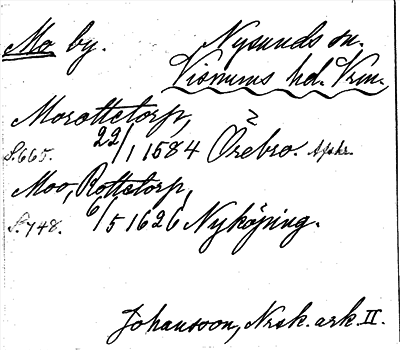 Mo by. Nysunds sn.
Visnums hd. Vrm.
Morottetorp,
S. 665. 22/1 1584 Örebro. Afskr.
Moo, Rottetorp,
S. 748. 6/5 1626 Nyköping.
Johansson, Nrsk. ark. II.